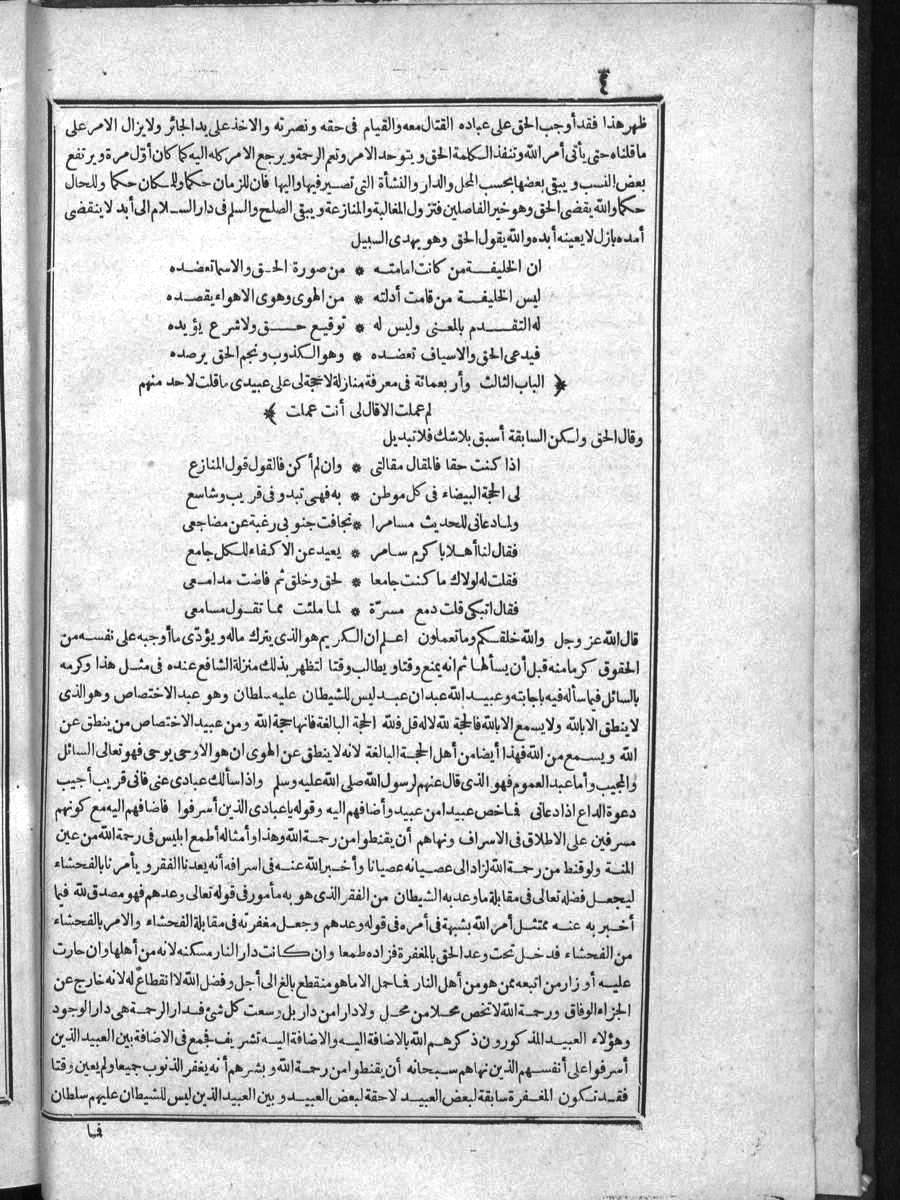 ٤
ظهر هذا فقد أوجب الحق على عباده القتال معه والقيام فى حقه ونصرته والاخذ على يد الجائر ولا يزال الامر على
ما قلناه حتى يأتى أمر الله وتنفذ الكلمة الحق ويتوحد الامر وتعم الرحمة ويرجع الامر كله اليه كما كان أوّل مرة ويرتفع
بعض النسب ويبقى بعضها بحسب المحل والدار والنشأة التى تصير فيها واليها فان للزمان حكما وللمكان حكما وللحال
حكما والله يقضى الحق وهو خير الفاصلين فتزول المغالبة والمنازعة ويبقى الصلح والسلم فى دار السلام الى أبد لا ينقضى
أمده بازل لا يعينه أبده والله يقول الحق وهو يهدى السبيل
ان الخليفة من كانت امامته * من صورة الحق والاسما تعضده
ليس الخليفة من قامت أدلته * من الهوى وهوى الاهواء يقصده
له التقدم بالمعنى وليس له * توقيع حق ولا شرع يؤيده
فيدعى الحق والاسياف تعضده * وهو الكذوب ونجم الحق يرصده
﴿ الباب الثالث وأربعمائة فى معرفة منازلة لا حجة لى على عبيدى ما قلت لاحد منهم
لم عملت الا قال لى أنت عملت ﴾
وقال الحق ولكن السابقة أسبق بلا شك فلا تبديل
اذا كنت حقا فالمقال مقالتى * وان لم أكن فالقول قول المنازع
لى الحجة البيضاء فى كل موطن * به فهى تبدو فى قريب وشاسع
ولما دعانى للحديث مسامرا * تجافت جنوبى رغبة عن مضاجعى
فقال لنا أهلا باكرم سامر * يعيد عن الاكفاء للكل جامع
فقلت له لولاك ما كنت جامعا * لحق وخلق ثم فاضت مدامعى
فقال اتبكى قلت دمع مسرّة * لما ملئت مما تقول مسامعى
قال الله عز وجل والله خلقكم وما تعملون اعلم ان الكريم هو الذى يترك ماله ويؤدّى ما أوجبه على نفسه من
الحقوق كرما منه قبل أن يسألها ثم انه يمنع وقتا ويطالب وقتا لتظهر بذلك منزلة الشافع عنده فى مثل هذا وكرمه
بالسائل فيما سأله فيه باجابته وعبيد الله عبدان عبد ليس للشيطان عليه سلطان وهو عبد الاختصاص وهو الذى
لا ينطق الا بالله ولا يسمع الا بالله فالحجة لله لا له قل فلله الحجة البالغة فانها حجة الله ومن عبيد الاختصاص من ينطق عن
الله ويسمع من الله فهذا أيضا من أهل الحجة البالغة لانه لا ينطق عن الهوى ان هو الا وحى يوحى فهو تعالى السائل
والمجيب وأما عبد العموم فهو الذى قال عنهم لرسول الله صلى الله عليه وسلم واذا سألك عبادى عنى فانى قريب أجيب
دعوة الداع اذا دعانى فما خص عبيدا من عبيد وأضافهم اليه وقوله يا عبادى الذين أسرفوا فاضافهم اليه مع كونهم
مسرفين على الاطلاق فى الاسراف ونهاهم أن يقنطوا من رحمة الله وهذا وأمثاله أطمع ابليس فى رحمة الله من عين
المنة ولو قنط من رحمة الله لزاد الى عصيانه عصيانا وأخبر الله عنه فى اسرافه أنه يعدنا الفقر ويأمرنا بالفحشاء
ليجعل فضله تعالى فى مقابلة ما وعد به الشيطان من الفقر الذى هو به مأمور فى قوله تعالى وعدهم فهو مصدق لله فيما
أخبر به عنه ممتثل أمر الله بشبهة فى أمره فى قوله وعدهم وجعل مغفرته فى مقابلة الفحشاء والامر بالفحشاء
من الفحشاء فدخل تحت وعد الحق بالمغفرة فزاده طمعا وان كانت دار النار مسكنه لانه من أهلها وان حارت
عليه أوزار من اتبعه ممن هو من أهل النار فاحمل الا ما هو منقطع بالغ الى أجل وفضل الله لا انقطاع له لانه خارج عن
الجزاء الوفاق ورحمة الله لا تخص محلا من محل ولا دارا من دار بل وسعت كل شئ فدار الرحمة هى دار الوجود
وهؤلاء العبيد المذكورون ذكرهم الله بالاضافة اليه والاضافة اليه تشريف فجمع فى الاضافة بين العبيد الذين
أسرفوا على أنفسهم الذين نهاهم سبحانه أن يقنطوا من رحمة الله وبشرهم أنه يغفر الذنوب جميعا ولم يعين وقتا
فقد تكون المغفرة سابقة لبعض العبيد لاحقة لبعض العبيد وبين العبيد الذين ليس للشيطان عليهم سلطان
فما